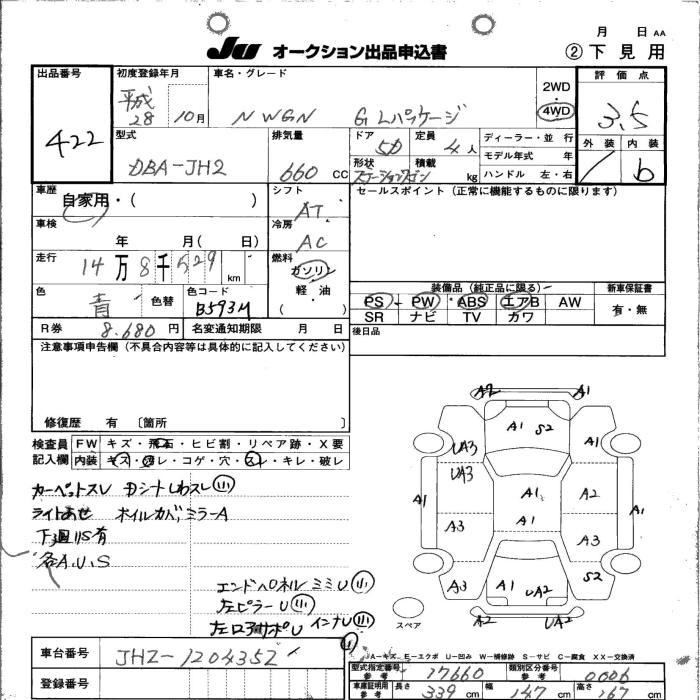 月 日 AA
JU オークション出品申込書 ②下見用
出品番号 初度登録年月 車名・グレード 2WD 評価点
422 平成28 10月 NWGN GLパッケージ 4WD 3.5
型式 排気量 ドア 5D 定員 4人 ディーラー・並行 外装 内装
DBA-JH2 660 CC 形状 ステーションワゴン 積載 kg モデル年式 年 b
ハンドル 左・右
車歴 自家用・( ) シフト AT セールスポイント (正常に機能するものに限ります)
車検 年 月( 日) 冷房 AC
走行 14万8千529 km 燃料 ガソリン 軽・油 ( ・ )
色 青 色替 色コード B593M
装備品 (純正品に限る) 新車保証書
PS PW ABS エアB AW 有・無
SR ナビ TV カワ
R券 8.680円 名変通知期限 月 日 後日品
注意事項申告欄 (不具合内容等は具体的に記入してください)
修復歴 有 〔箇所 〕
検査員記入欄 FW キズ・飛石・ヒビ割・リペア跡・X要
内装 キズ・汚レ・コゲ・穴・スレ・キレ・破レ
カーペットスレ Dシートしわスレ小
ライトあせ ホイルカバミラーA
下廻りS有
各A.U.S
エンドパネルミミU小
左ピラーU小
左ロアサポU インナU小
小
A2 A1
A1 S2
UA3 A1
UA3
A1 A1 A2 A1
A3 A1 A3
A3 A1 UA2 S2
A2 UA2
スペア
A-キズ E-エクボ U-凹み W-補修跡 S-サビ C-腐食 XX-交換済
車台番号 JH2-1204352
型式指定番号 参考 17660 類別区分番号 参考 0006
登録番号
車庫証明用 参考 長さ 339 cm 幅 147 cm 高さ 167 cm